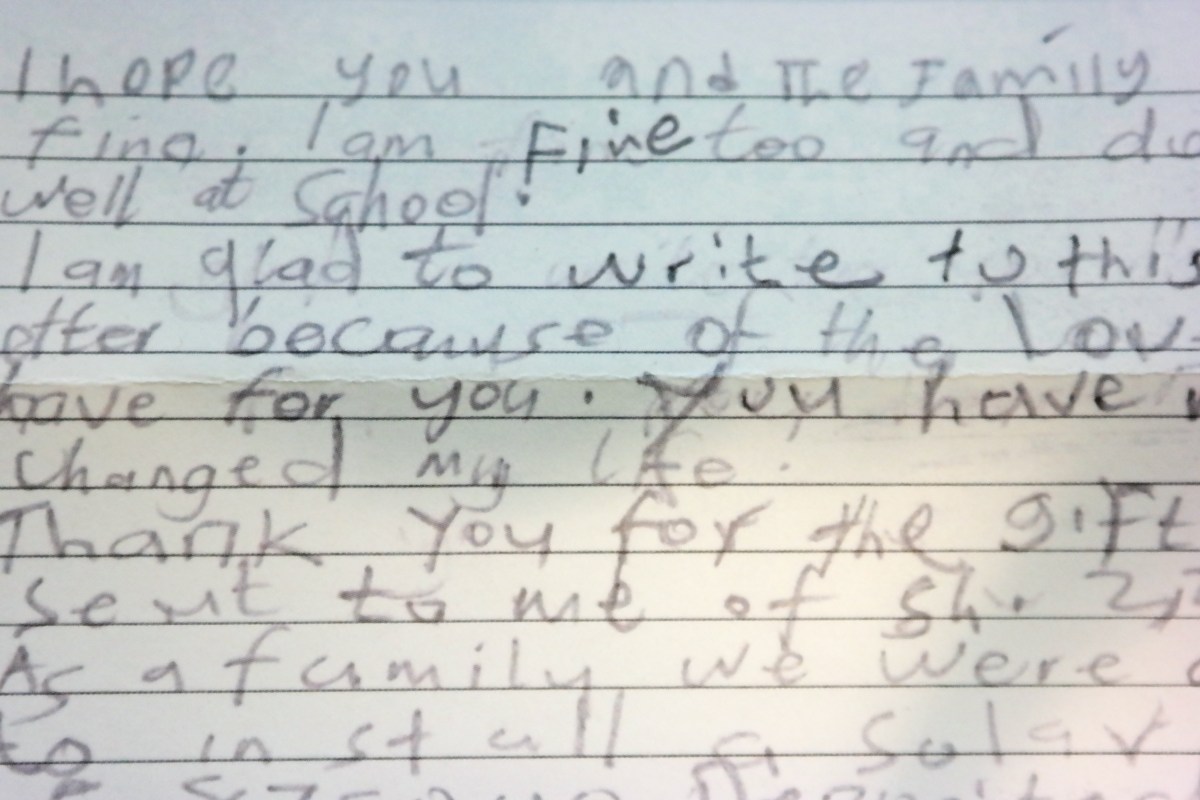 I hope you and the Family
fine. I am Fine too and do
well at School.
I am glad to write to this
etter because of the Lov
have for you. You have
changed my life.
Thank You for the gift
Sent to me of Sh. 2,
As a family we were
to install a Solar